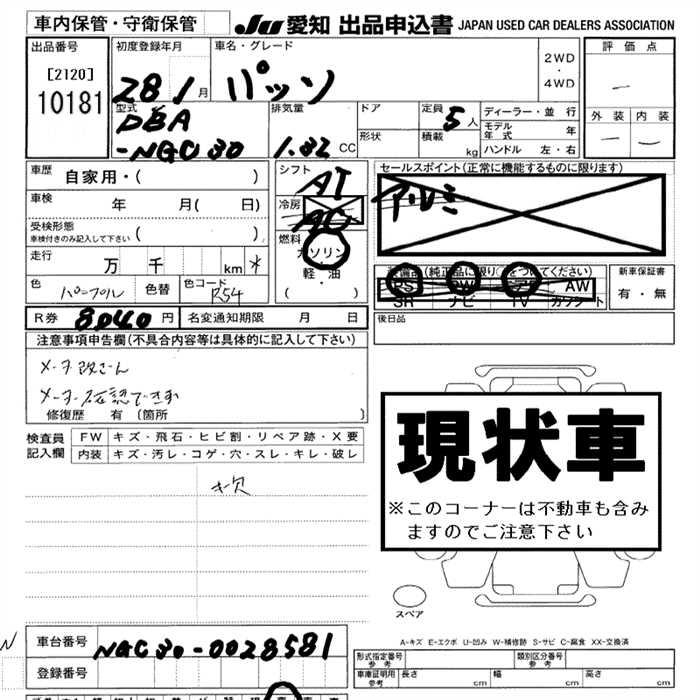 車内保管・守衛保管
JU 愛知 出品申込書 JAPAN USED CAR DEALERS ASSOCIATION
出品番号
[2120]
10181
初度登録年月
28 1 月
車名・グレード
パッソ
2WD
・
4WD
評価点
—
外装 内装
— —
型式
DBA
-NGC30
排気量
1.32 CC
ドア
形状
定員 5 人
積載 kg
ディーラー・並行
モデル年式 年
ハンドル 左・右
車歴
自家用・( )
車検 年 月( 日)
受検形態
車検付きのみ記入して下さい ( )
走行 万 千 km *
色 パープル 色替 色コード R54
シフト AT
冷房 AC
燃料
ガソリン
軽・油
( )
セールスポイント(正常に機能するものに限ります)
アルミ
装備品(純正品に限り○をつけてください)
PS PW エアB AW
SR ナビ TV カセット
新車保証書
有・無
R券 8040 円 名変通知期限 月 日
後日品
注意事項申告欄(不具合内容等は具体的に記入して下さい)
メーター改ざん
メーター確認できず
修復歴 有 (箇所 )
検査員
記入欄
FW キズ・飛石・ヒビ割・リペア跡・X要
内装 キズ・汚レ・コゲ・穴・スレ・キレ・破レ
現状車
※このコーナーは不動車も含み
ますのでご注意下さい
スペア
A-キズ E-エクボ U-凹み W-補修跡 S-サビ C-腐食 XX-交換済
車台番号 NGC30-0028581
登録番号
形式指定番号
参考
類別区分番号
参考
車庫証明用
参考
長さ cm 幅 cm 高さ cm